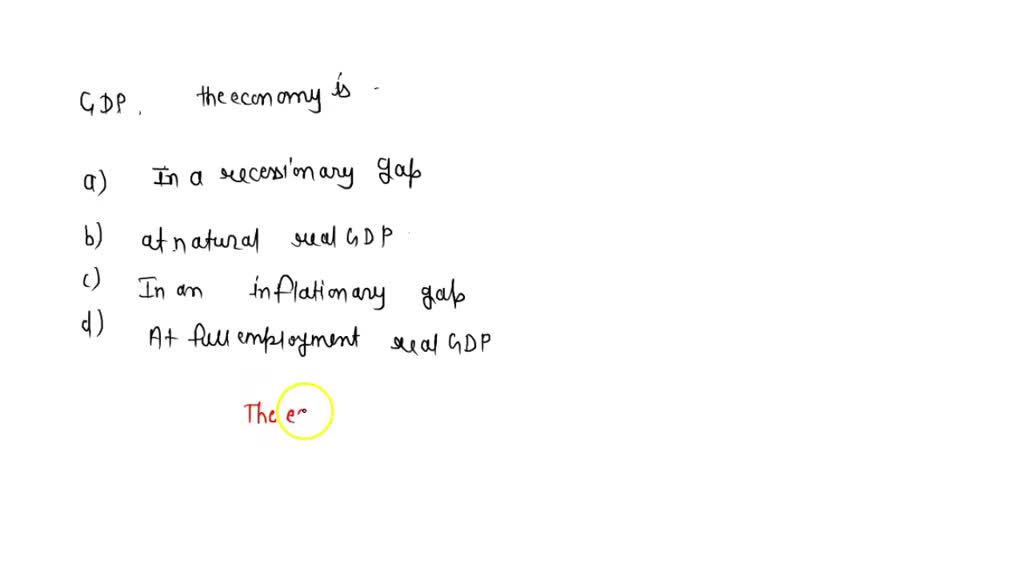 GDP. the economy is
a) In a recessionary gap
b) at natural real GDP
c) In an inflationary gap
d) At full employment real GDP
The e